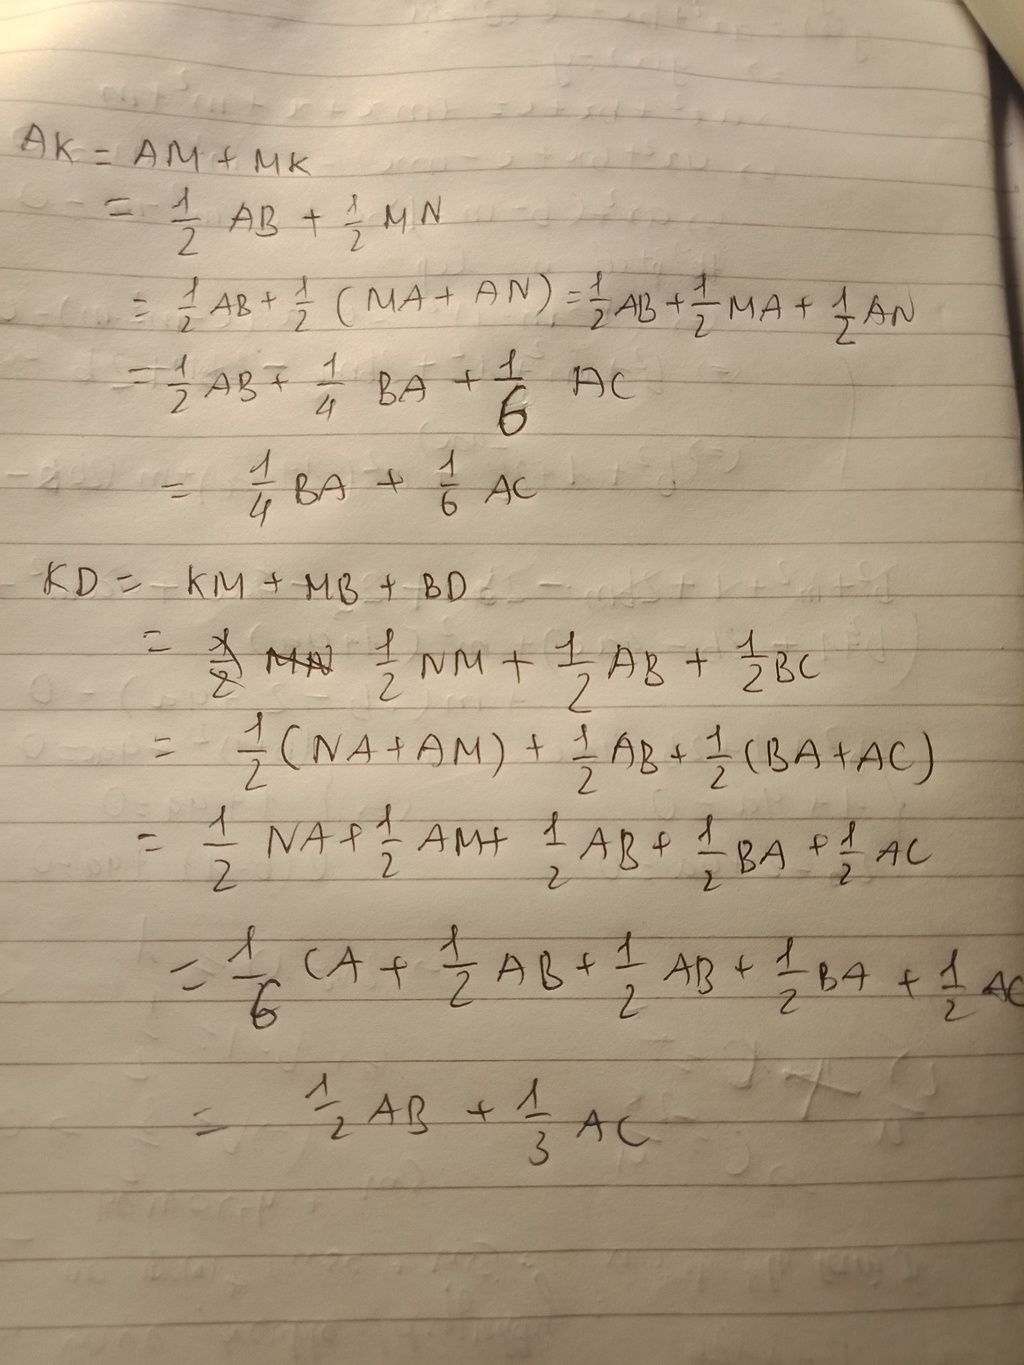 AK = AM + MK
= 1/2 AB + 1/2 MN
= 1/2 AB + 1/2 (MA + AN) = 1/2 AB + 1/2 MA + 1/2 AN
= 1/2 AB + 1/4 BA + 1/6 AC
= 1/4 BA + 1/6 AC
KD = KM + MB + BD
= 1/2 MN 1/2 NM + 1/2 AB + 1/2 BC
= 1/2 (NA + AM) + 1/2 AB + 1/2 (BA + AC)
= 1/2 NA + 1/2 AM + 1/2 AB + 1/2 BA + 1/2 AC
= 1/6 CA + 1/2 AB + 1/2 AB + 1/2 BA + 1/2 AC
= 1/2 AB + 1/3 AC